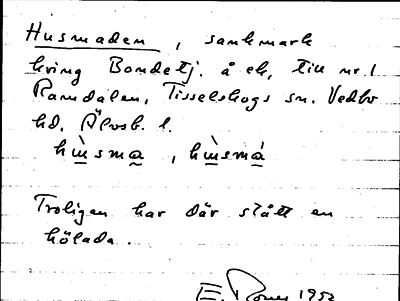 Husmaden, sankmark
kring Bondetj. å ek, till nr 1
Ramdalen, Tisselskogs sn. Vedbo
hd, Älvsb. l.
hùsma, hùsmá
Troligen har där stått en
hölada.
E. 1952